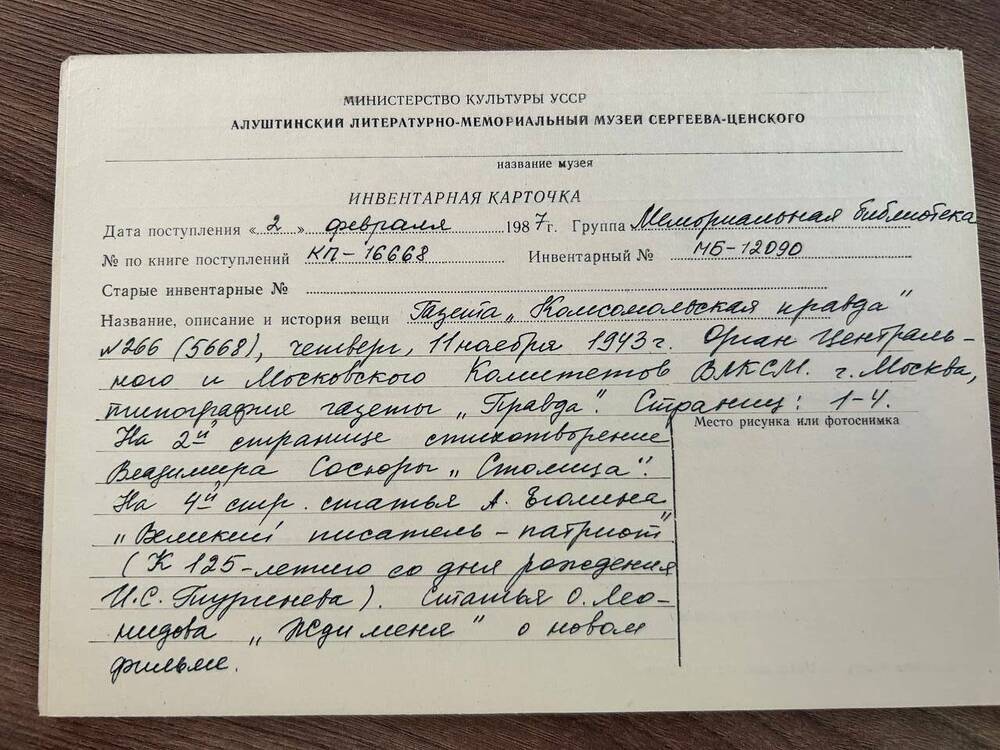 МИНИСТЕРСТВО КУЛЬТУРЫ УССР
АЛУШТИНСКИЙ ЛИТЕРАТУРНО-МЕМОРИАЛЬНЫЙ МУЗЕЙ СЕРГЕЕВА-ЦЕНСКОГО
название музея
ИНВЕНТАРНАЯ КАРТОЧКА
Дата поступления « 2 » февраля 1987 г. Группа Мемориальная библиотека
№ по книге поступлений КП-16668 Инвентарный № МБ-12090
Старые инвентарные №
Название, описание и история вещи Газета „Комсомольская правда"
№266 (5668), четверг, 11 ноября 1943 г. Орган Централь-
ного и Московского Комитетов ВЛКСМ. г. Москва,
типография газеты „Правда". Страниц: 1-4.
Место рисунка или фотоснимка
На 2й странице стихотворение
Владимира Сосюры „Столица".
На 4й стр. статья А. Еголина
„Великий писатель-патриот"
(К 125-летию со дня рождения
И.С. Тургенева). Статья О. Лео-
нидова „Жди меня" о новом
фильме.